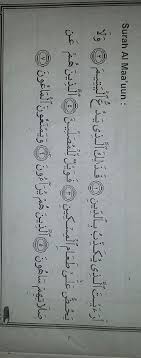 Surah Al Maa'uun :
أَرَءَيْتَ ٱلَّذِى يُكَذِّبُ بِٱلدِّينِ ١ فَذَٰلِكَ ٱلَّذِى يَدُعُّ ٱلْيَتِيمَ ٢ وَلَا
يَحُضُّ عَلَىٰ طَعَامِ ٱلْمِسْكِينِ ٣ فَوَيْلٌ لِّلْمُصَلِّينَ ٤ ٱلَّذِينَ هُمْ عَن
صَلَاتِهِمْ سَاهُونَ ٥ ٱلَّذِينَ هُمْ يُرَآءُونَ ٦ وَيَمْنَعُونَ ٱلْمَاعُونَ ٧